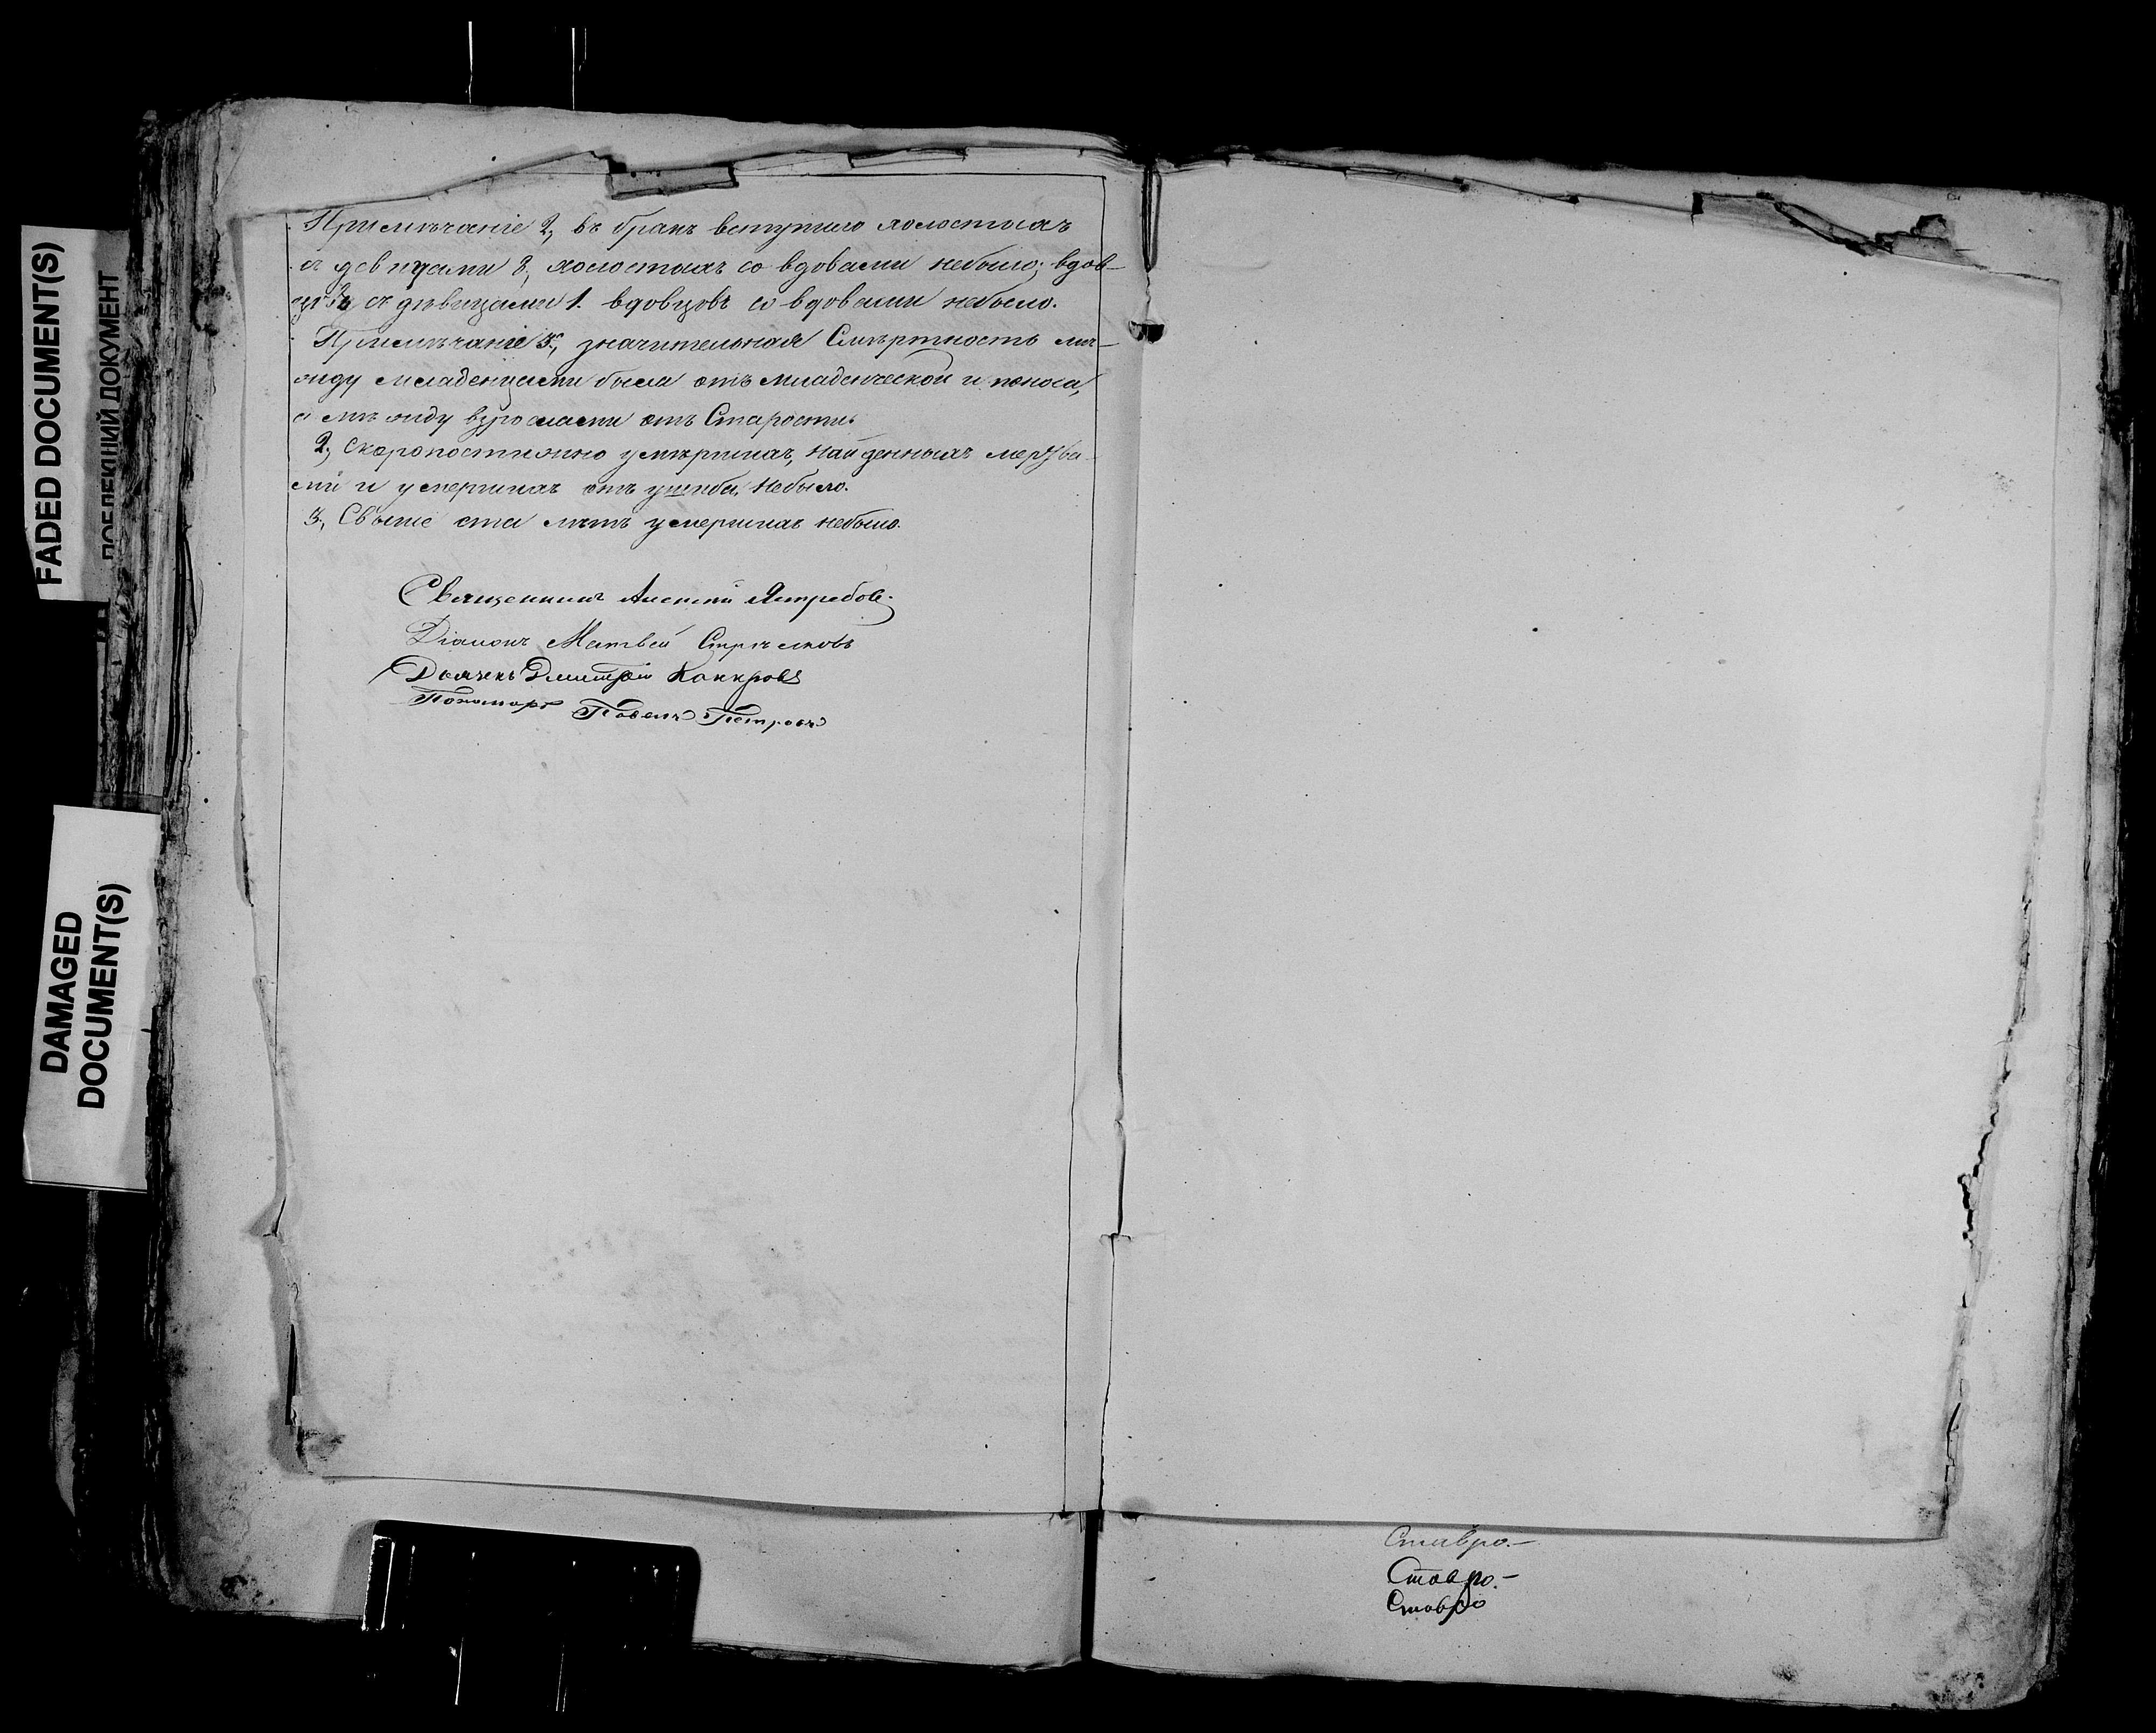 Примѣчаніе 2, въ бракъ вступило холостыхъ
съ дѣвицами 8, холостыхъ со вдовами небыло; вдов-
цевъ съ дѣвицами 1. вдовцовъ со вдовами небыло.
Примѣчаніе 3, значительная Смѣртность мѣ-
жду младенцами была отъ младенческой и поноса,
а мѣжду взрослыми отъ Старости.
2, Скоропостижно умѣршихъ, найденныхъ мертвы-
ми и умершихъ отъ ушиба, небыло.
3, Свыше ста лѣтъ умершихъ небыло.
Священникъ Алексѣй Ястребовъ.
Діаконъ Матвей Стрѣлковъ
Дьячекъ Дмитрій
Пономарь Павелъ Петровъ
Ставро.-
Ставро.-
Ставро
FADED DOCUMENT(S)
ДОКУМЕНТ
DAMAGED
DOCUMENT(S)